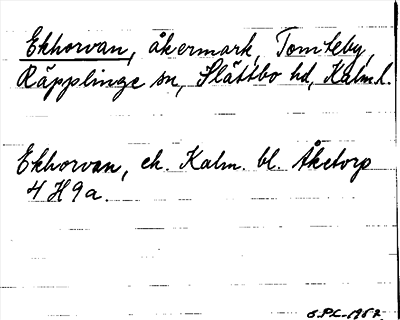 Ekhorvan, åkermark, Tomteby,
Räpplinge sn, Slättbo hd, Kalm.l.
Ekhorvan, ek. Kalm. bl. Åketorp
4 H 9 a.